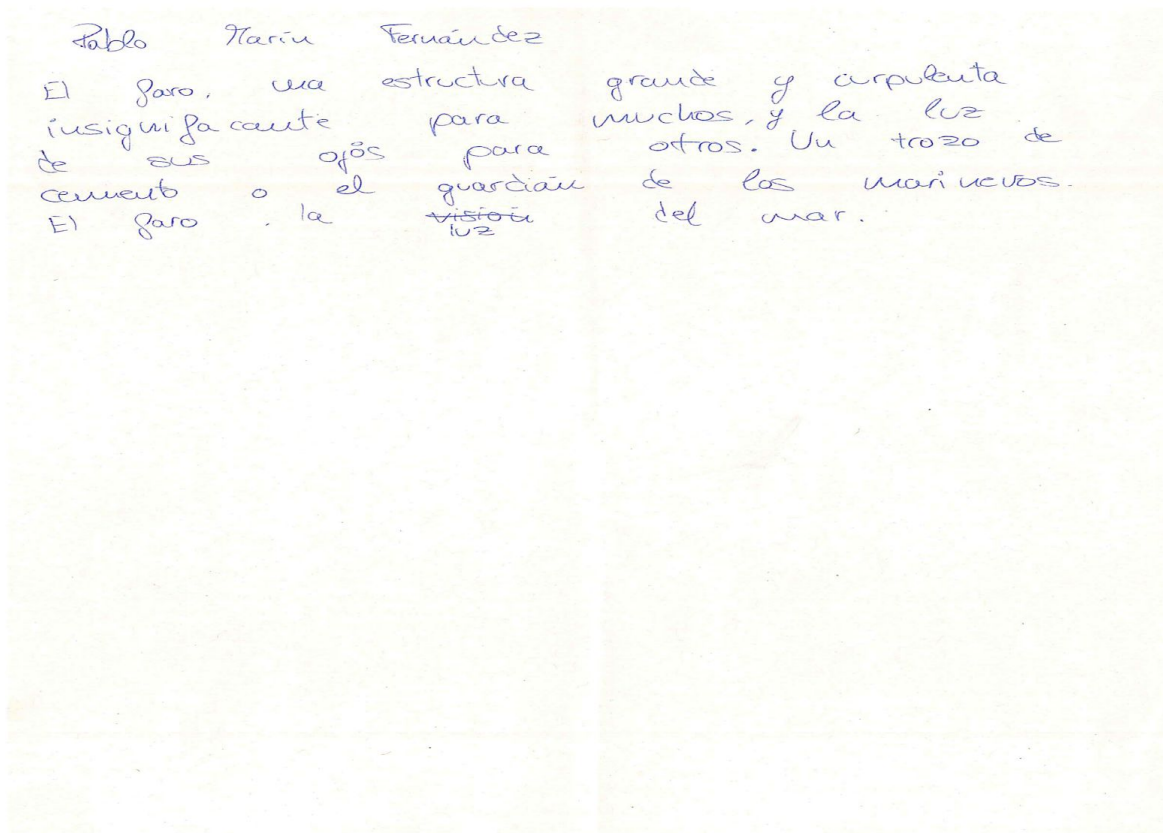 Pablo Marin Fernández
El faro, una estructura grande y curpulenta
insignifacante para muchos, y la luz
de sus ojos para otros. Un trozo de
cemento o el guardián de los marineros.
El faro, la visión del mar.
luz